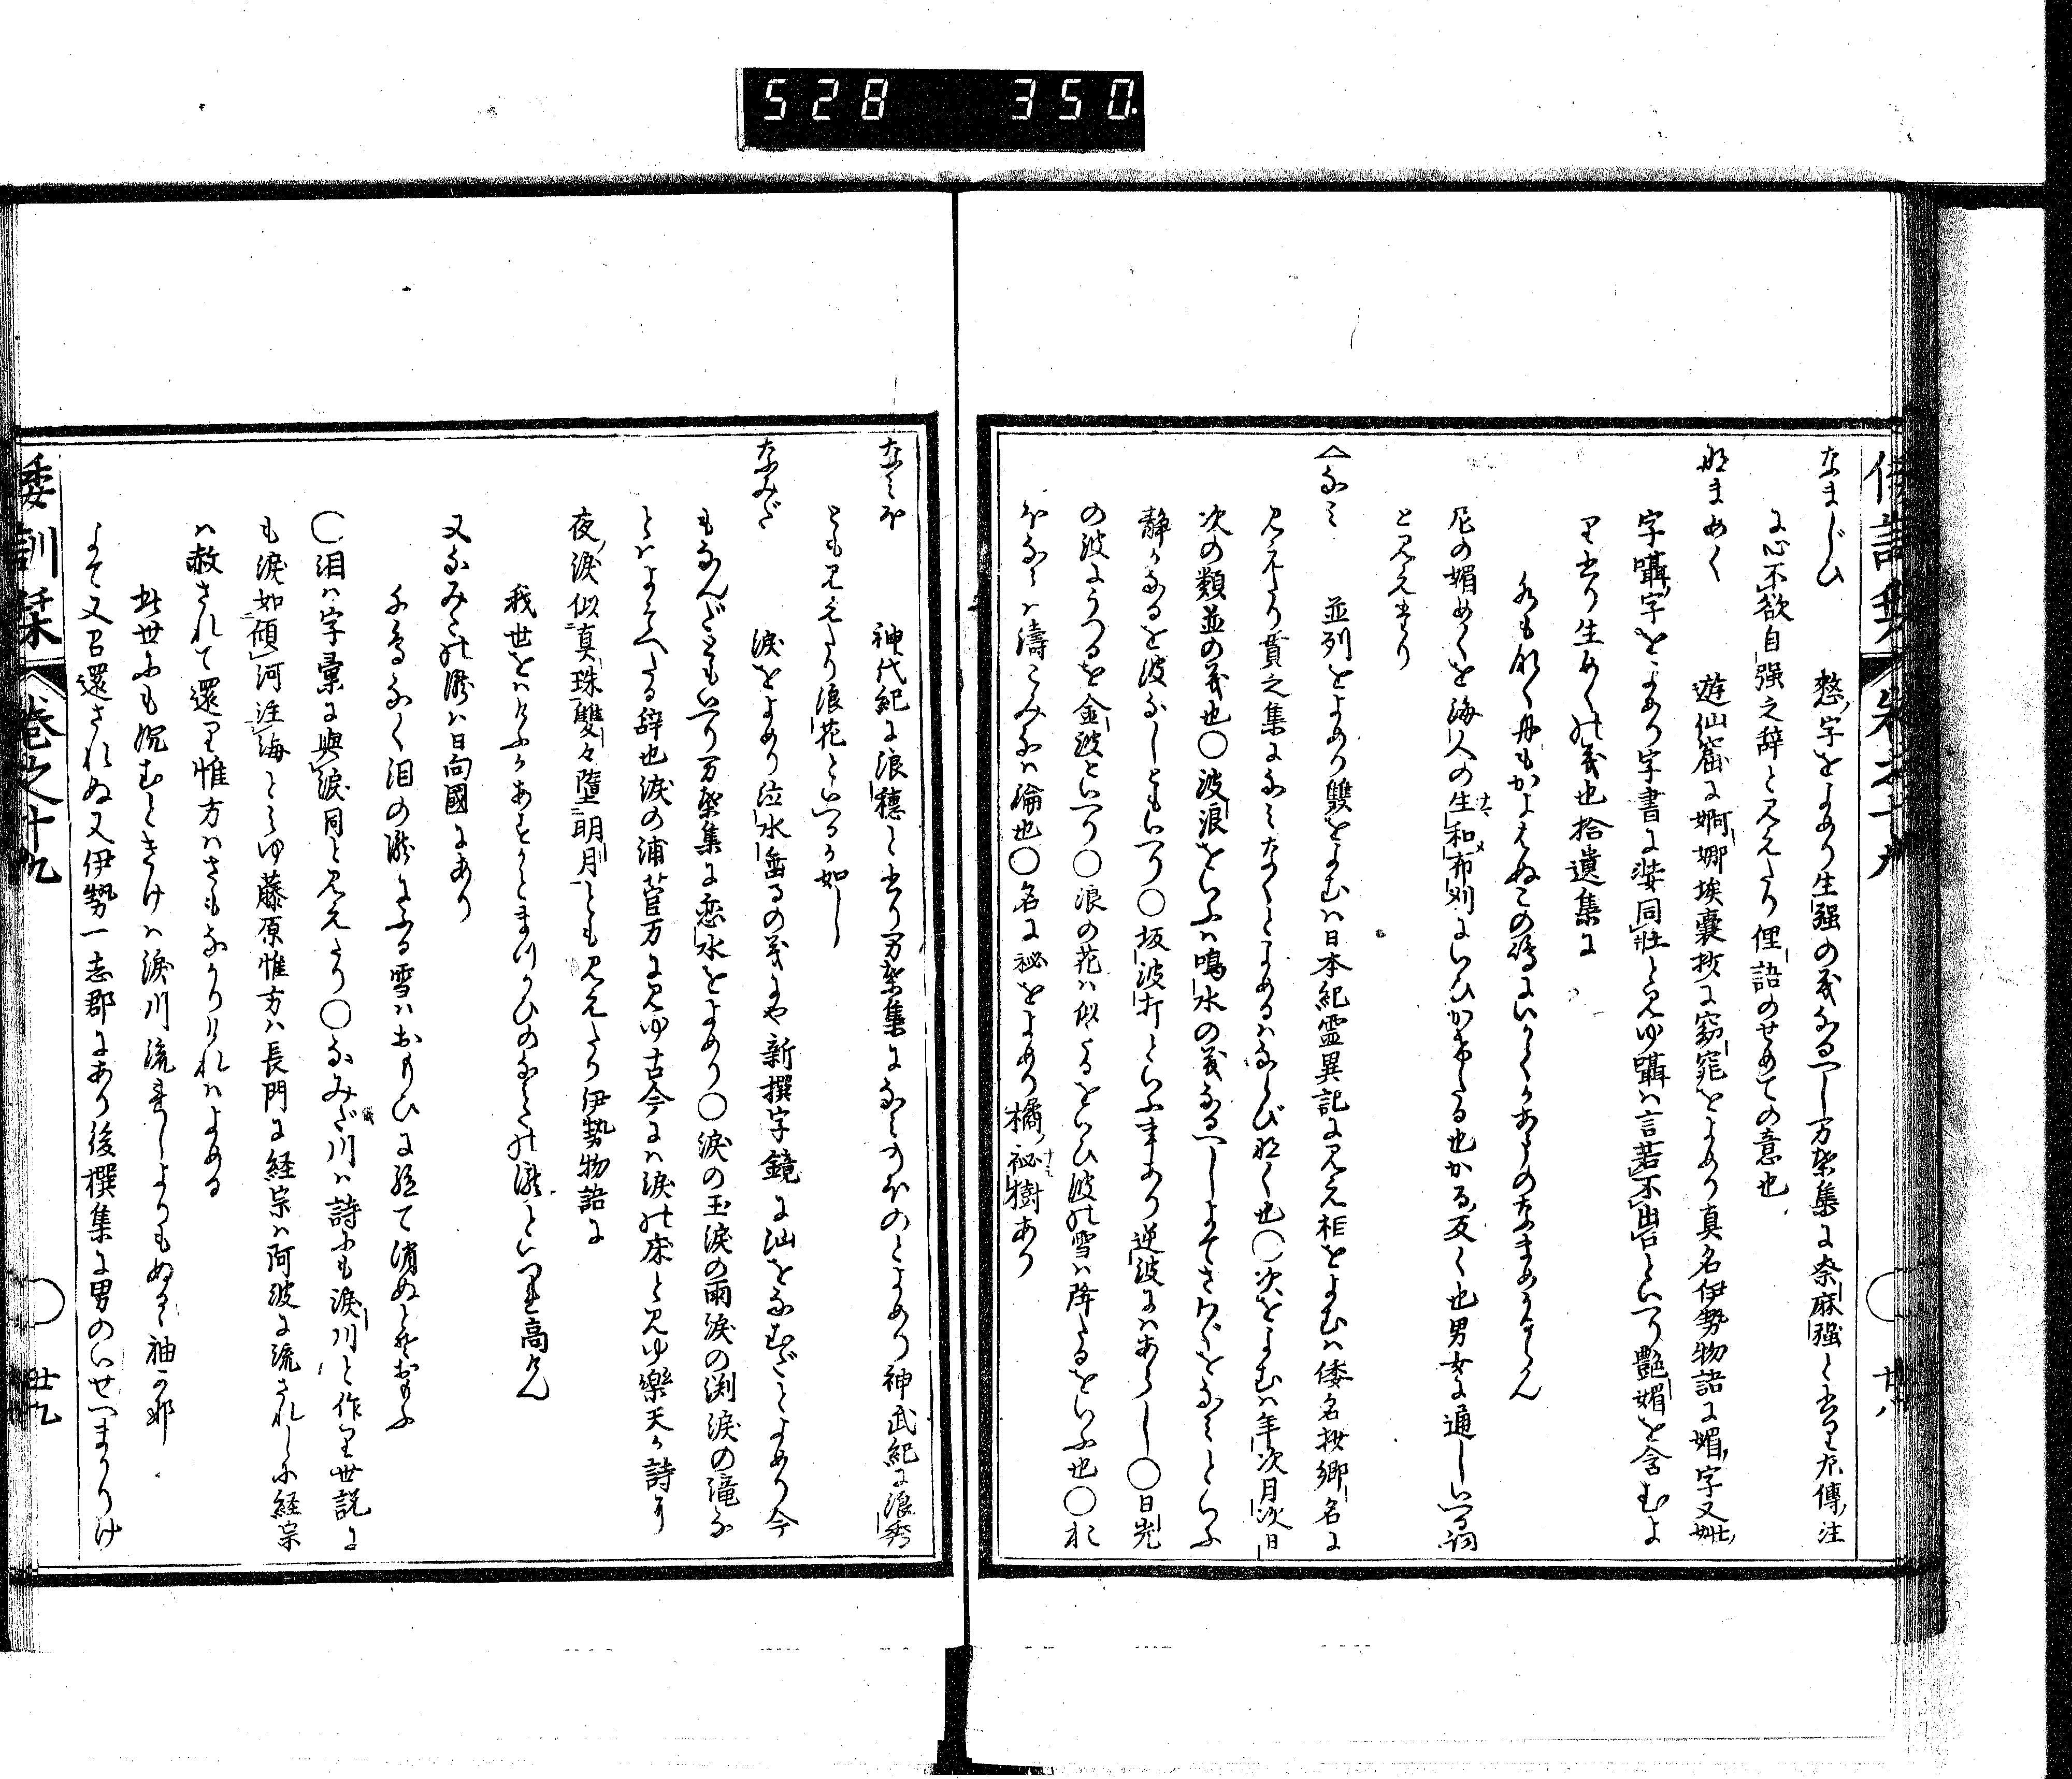 528 350
倭訓栞 巻之十九 廿八
なまじひ 憖字をよめり生強の義なるへし万葉集に奈麻強と書り左傳注
に心不欲自強之辞と見えたり俚語のせめての意也
なまめく 遊仙窟に婀娜埃嚢抄に窈窕をよめり真名伊勢物語に媚字又妣
字囁字をよめり字書に妝同壮と見ゆ囁は言若不出口といへり艶媚を含むよ
り出り生めくの義也拾遺集に
尼の媚めくを海人の生和布刈にいひかけたる也かゝる反く也男女に通しいへる詞
と見えたり
なみ 並列をよめり雙をよむは日本紀霊異記に見え柤をよむは倭名抄郷名に
見えたり貫之集になみなくとよめるはならびなく也○次をよむは年次月次日
次の類並の義也○波浪をいふは鳴水の義なるへしよてさわぐをなみといふ
静かなるを波なしともいへり○坂波打といふ事あり逆波にはあらし○日光
の波にうつるを金波といへり○浪の花は似たるをいひ波の雪は降たるをいふ也○お
ほなみは濤こみなみは淪也○名に祕をよめり橘祕樹あり
なみほ 神代紀に浪穂と書り万葉集になみのほのとよめり神武紀に浪秀
とも見えたり浪花といへるか如し
なみだ 涙をよめり泣水垂るの義にや新撰字鏡に汕をなむだとよめり今
もなんだともいへり万葉集に恋水をよめり○涙の玉涙の雨涙の渕涙の滝な
とはよそへたる辞也涙の浦菅万に見ゆ古今には涙の床と見ゆ樂天か詩に
夜涙似真珠雙々墮明月とも見えたり伊勢物語に
我世をはけふかあすかとまつかひのなみたの瀧といつれ高けん
又なみたの瀧は日向國にあり
○泪は字彙に與涙同と見えたり○なみだ川は詩にも涙川と作り世説に
も涙如傾河注海とみゆ藤原惟方は長門に経宗は阿波に流されしに経宗
は赦されて還り惟方はさもなかりけれはよめる
此世にも沈むときけは涙川流れしよりもぬるゝ袖かな
よて又召還されぬ又伊勢一志郡にあり後撰集に男のいせへまかりけ
倭訓栞 巻之十九 廿九